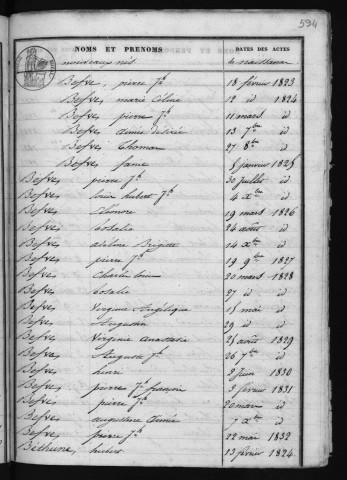 594
NOMS ET PRENOMS DATES DES ACTES
nouveaux nés de naissance
Besves, pierre Jh 18 fevrier 1823
Besves marie Céline 12 id 1824
Besves pierre Jh 11 mars id
Besves aimée désirée 13 7bre id
Besves Thomas 27 8bre id
Besves fanie 8 janvier 1825
Besves pierre Jh 30 Juillet id
Besves louis hubert Jh 4 Xbre id
Besves 19 mars 1826
Besves rosalie 24 août id
Besves adeline Brigitte 14 Xbre id
Besves pierre Jh 19 9bre 1827
Besves Charles louis 20 mars 1828
Besves rosalie 27 id id
Besves Virginie Angélique 15 mai id
Besves Augustin 29 id id
Besves Virginie Anastasie 25 août 1829
Besves Auguste Jh 26 7bre id
Besves henri 2 Juin 1830
Besves pierre Jh françois 3 fevrier 1831
Besves pierre Jh 20 mars id
Besves augustine Aimée 7 Xbre id
Besves pierre Jh 22 mai 1832
Béthune, hubert 13 fevrier 1824